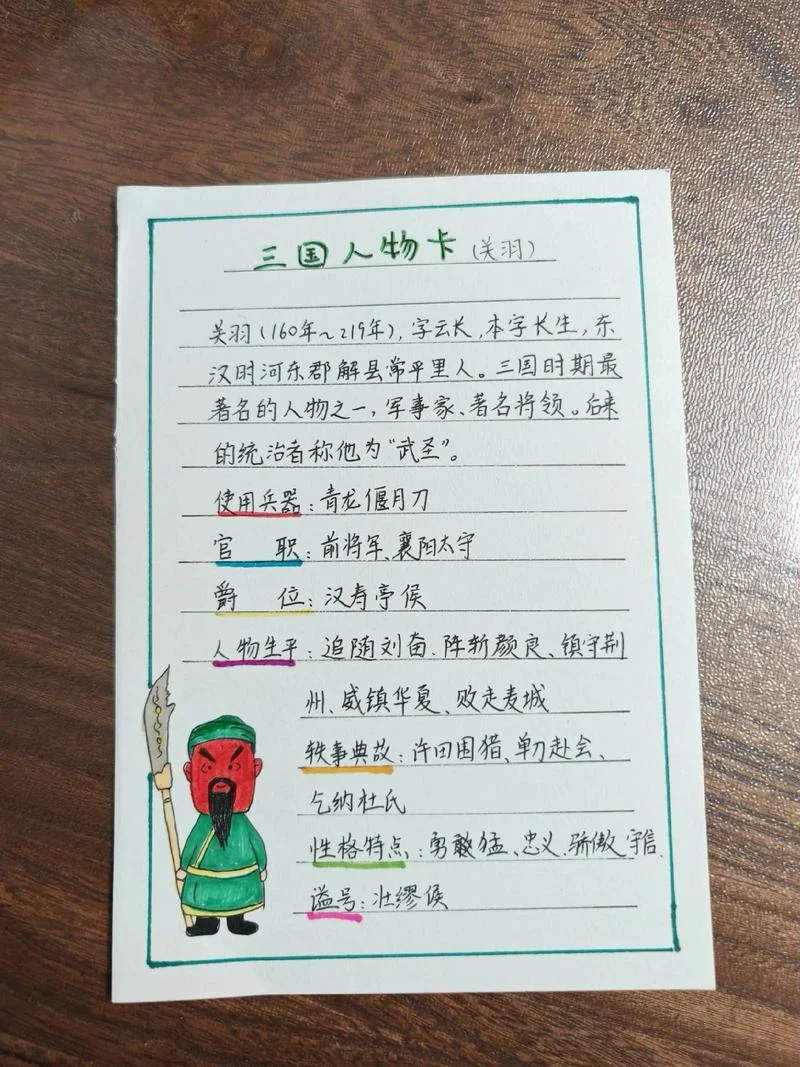 三国人物卡(关羽)
关羽(160年~219年),字云长,本字长生,东
汉时河东郡解县常平里人。三国时期最
著名的人物之一,军事家、著名将领。后来
的统治者称他为“武圣”。
使用兵器:青龙偃月刀
官 职:前将军、襄阳太守
爵 位:汉寿亭侯
人物生平:追随刘奋、阵斩颜良、镇守荆
州、威镇华夏、败走麦城
轶事典故:许田围猎、单刀赴会、
乞纳杜氏
性格特点:勇敢猛、忠义、骄傲、守信.
谥号:壮缪侯